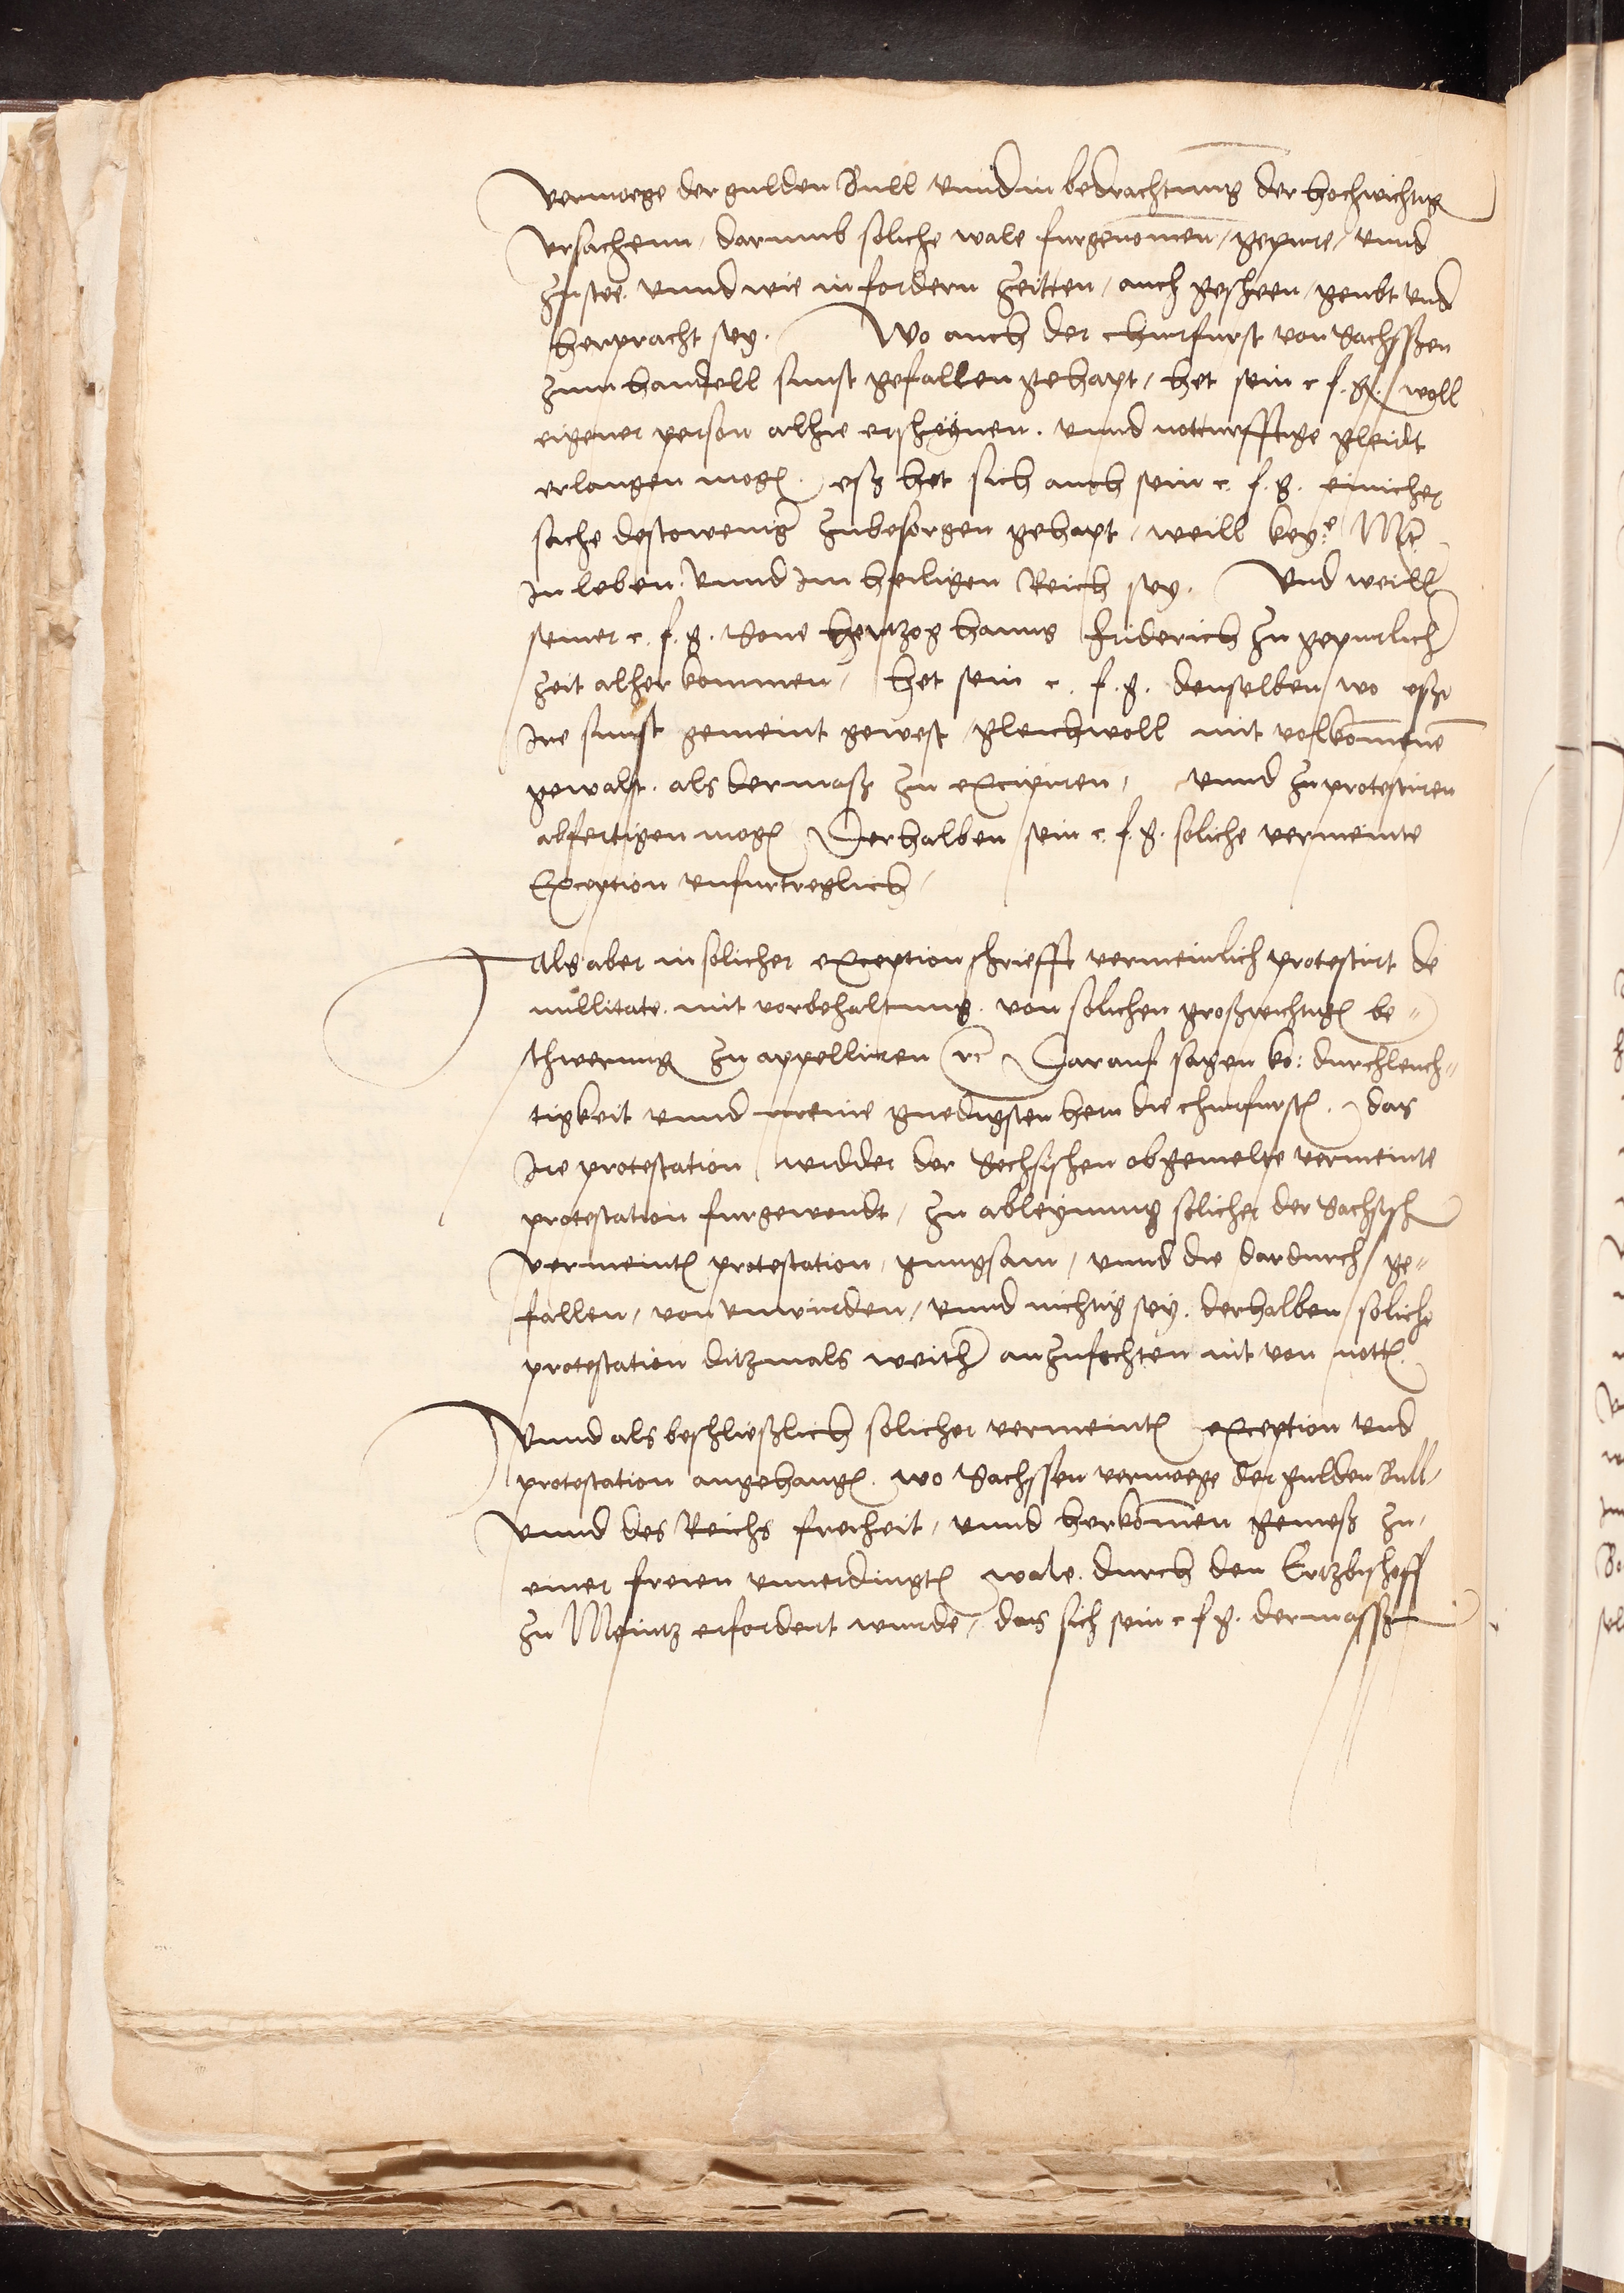 vermoege der gulden Bull vnnd in bedrachtung der hochwichtig
vrsachenn, darumb soliche wale furgenomen, gepure, vnnd
zustee vnnd wie in fordern zeitten, auch gescheen, geubt vnd
herpracht sey. Wo auch der churfurst von Sachssen
zum handell sunst gefallen gehapt, het sein c. f. g. woll
eigener person alhie erscheynen. vnnd notturfftige gleidt
erlangen mogen. eß het sich auch sein c. f. g. einicher
sache destoweniger zubesorgen gehapt, weill key.e Mt.
In leben. vnnd Im heiligen Reich sey. Vnd weill
seiner c. f. g. Sone hertzog hanns Friderich zu gepurlicher
zeit alher kommen, het sein c. f. g. denselben wo eß
Ire sunst gemeint gewest gleichwoll mit volkommene
gewalt. als dermaß zu excipiren, vnnd zu protestiren
abfertigen mogen Derhalben sein c. f. g. soliche vermeinte
Exception vnfurtreglich,
Als aber in solicher exception schriefft vermeinlich protestirt de
nullitate. mit vorbehaltung. von solichen großwichtigen be-
schwerung zu appelliren rc Darauf sagen ko: durchleuch-
tigkeit vnnd meine gnedigsten hern die churfursten. das
Ire protestation widder der Sechsischen obgemelte vermeinte
protestation furgewendt, zu ableynung solicher der Sachsisch
vermeinten protestation, gnugsam, vnnd die dardurch ge-
fallen, von vnwirden, vnnd nichtig sey. derhalben soliche
protestation ditzmals weither anzufechten nit von notten.
Vnnd als beschließlich solicher vermeinten exception vnd
protestation angehangen. wo Sachssen vermoege der gulden Bull,
vnnd des Reichs freiheit, vnnd herkomen gemeß zu,
einer freien vnuerdingten wale. durch den Ertzbischoff
zu Meintz erfordert wurde, das sich sein c. f. g. dermassen